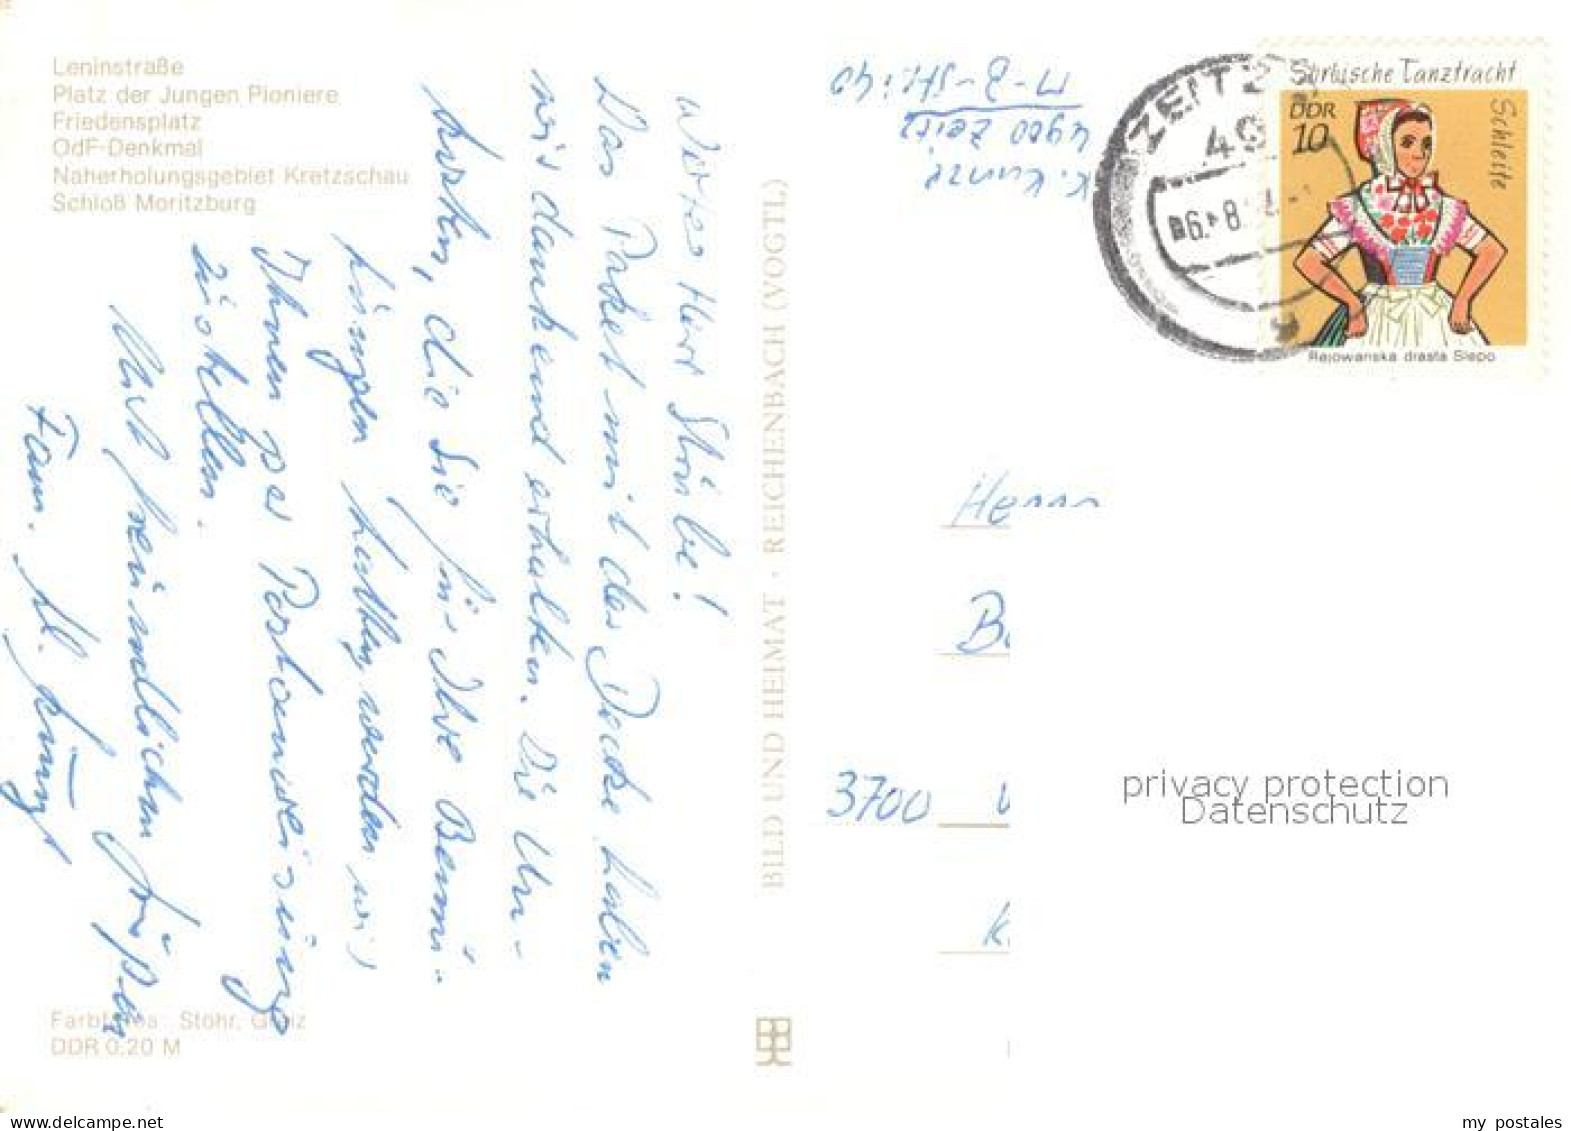 Leninstraße
Platz der Jungen Pioniere
Friedensplatz
OdF-Denkmal
Naherholungsgebiet Kretzschau
Schloß Moritzburg
Wertes Herr Stäube!
Das Paket mit der Decke haben
wir dankend erhalten. Die Un-
kosten, die Sie für Ihre Bemü-
hungen hatten, werden wir
Ihnen per Postanweisung
zustellen.
Mit freundlichen Grüßen
Fam. M. Kunze
Farbfotos: Stöhr,
DDR 0,20 M
BILD UND HEIMAT · REICHENBACH (VOGTL)
K. Kunze
4900 Zeitz
M-B-Str. 40
ZEITZ
49
Sorbische Tanztracht
Schleife
DDR
10
Rejowanska drasta Slepo
Herrn
3700
privacy protection
Datenschutz
my postales